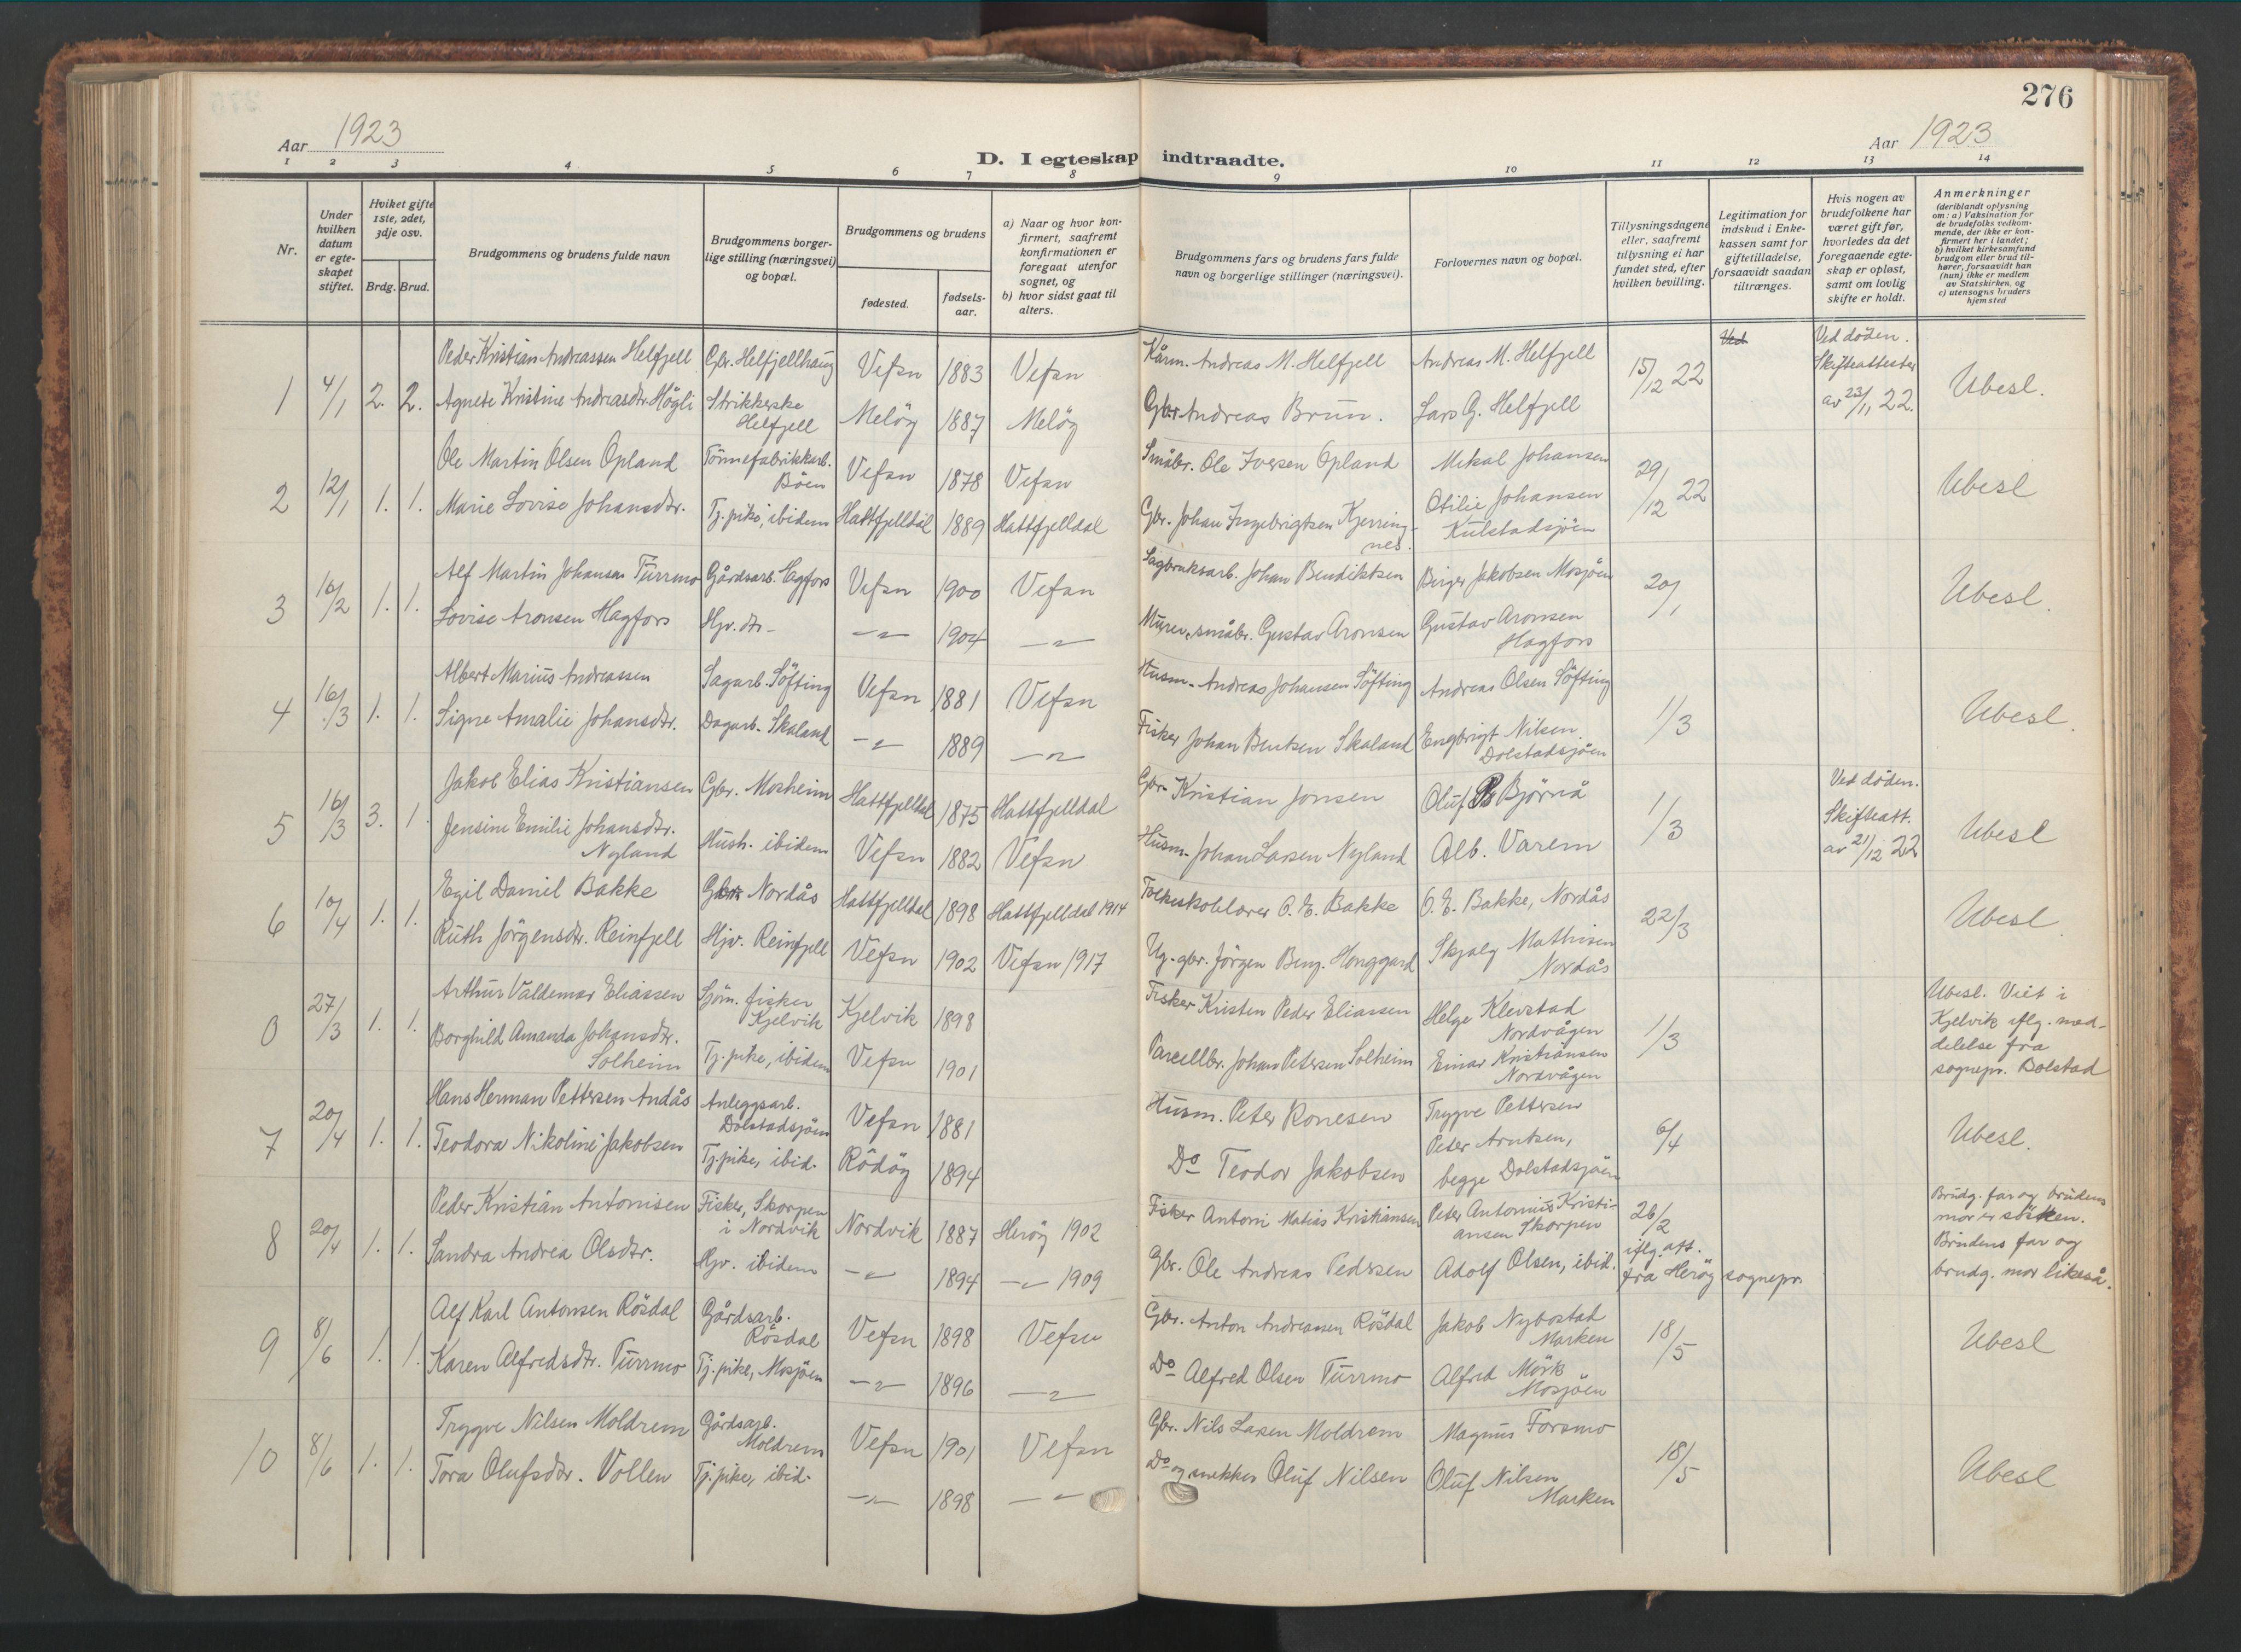 276
Aar 1923
D. I egteskap indtraadte.
Aar 1923
1 2 3 4 5 6 7 8 9 10 11 12 13 14
Nr.
Under hvilken datum er egteskapet stiftet.
Hviket gifte 1ste, 2det, 3dje osv.
Brdg. Brud.
Brudgommens og brudens fulde navn
Brudgommens borgerlige stilling (næringsvei) og bopæl.
Brudgommens og brudens
fødested.
fødselsaar.
a) Naar og hvor konfirmert, saafremt konfirmationen er foregaat utenfor sognet, og
b) hvor sidst gaat til alters.
Brudgommens fars og brudens fars fulde navn og borgerlige stillinger (næringsvei).
Forlovernes navn og bopæl.
Tillysningsdagene eller, saafremt tillysning ei har fundet sted, efter hvilken bevilling.
Legitimation for indskud i Enkekassen samt for giftetilladelse, forsaavidt saadan tiltrænges.
Hvis nogen av brudefolkene har været gift før, hvorledes da det foregaaende egteskap er opløst, samt om lovlig skifte er holdt.
Anmerkninger (deriblandt oplysning om: a) Vaksination for de brudefolks vedkommende, der ikke er konfirmert her i landet; b) hvilket kirkesamfund brudgom eller brud tilhører, forsaavidt han (hun) ikke er medlem av Statskirken, og c) utensogns bruders hjemsted
1 4/1 2. 2. Peder Kristian Andreassen Helfjell Gbr. Helfjellhaug Vefsn 1883 Vefsn Kårm. Andreas M. Helfjell Andreas M. Helfjell 15/12 22 Ved Ved döden. Skifteattester av 23/11 22. Ubesl.
Agnete Kristine Andreasdtr. Högli Strikkerske Helfjell Melöy 1887 Melöy Gbr. Andreas Brun. Lars G. Helfjell
2 12/1 1. 1. Ole Martin Olsen Opland Tönnefabrikkarb. Böen Vefsn 1878 Vefsn Småbr. Ole Iversen Opland Mikal Johansen 29/12 22 Ubesl
Marie Lovise Johansdtr. Tj. pike, ibidem Hattfjelldal 1889 Hattfjelldal Gbr. Johan Ingebrigtsen Kjerringnes. Otilie Johansen Kulstadsjöen
3 16/2 1. 1. Alf Martin Johansen Turrmo Gårdsarb. Hagfors Vefsn 1900 Vefsn Sagbruksarb. Johan Bendiktsen Birger Jakobsen Mosjöen 20/1 Ubesl.
Lovise Aronsen Hagfors Hjv. dtr - -"- 1904 -"- Murer, småbr. Gustav Aronsen Gustav Aronsen Hagfors
4 16/3 1. 1. Albert Marius Andreassen Sagarb. Söfting Vefsn 1881 Vefsn Husm. Andreas Johansen Söfting Andreas Olsen Söfting 1/3 Ubesl.
Signe Amalie Johansdtr. Dagarb. Skaland -"- 1889 -"- Fisker Johan Bentsen Skaland Engbrigt Nilsen Dolstadsjöen
5 16/3 3. 1. Jakob Elias Kristiansen Gbr. Mosheim Hattfjelldal 1875 Hattfjelldal Gbr. Kristian Jonsen Oluf Bjørnå 1/3 Ved döden. Skifteatt. av 21/12 22 Ubesl
Jensine Emilie Johansdtr. Nyland Hush. ibidem Vefsn 1882 Vefsn Husm. Johan Larsen Nyland Alb. Varem
6 10/4 1. 1. Egil Daniel Bakke Nordås Hattfjelldal 1898 Hattfjelldal 1914 Folkeskolelærer O. E. Bakke O. E. Bakke, Nordås 22/3 Ubesl.
Ruth Jörgensdtr. Reinfjell Hjv. Reinfjell Vefsn 1902 Vefsn 1917 Ug. gbr. Jörgen Beng. Honggard Skjalg Mathisen Nordås
0 27/3 1. 1. Arthur Valdemar Eliassen Sjöm. fisker Kjelvik Kjelvik 1898 Fisker Kristen Peder Eliassen Helge Klevstad Nordvågen 1/3 Ubesl. Viet i Kjelvik iflg. meddelelse fra sognepr. Bolstad
Borghild Amanda Johansdtr. Solheim Tj. pike, ibidem Vefsn 1901 Parcellbr. Johan Petersen Solheim Einar Kristiansen Nordvågen
7 20/4 1. 1. Hans Herman Pettersen Andås Anleggsarb. Dolstadsjöen Vefsn 1881 Husm. Peter Ronesen Trygve Pettersen 6/4 Ubesl.
Teodora Nikoline Jakobsen Tj. pike, ibid. Rödöy 1894 Do Teodor Jakobsen Peter Arntsen, begge Dolstadsjöen
8 20/4 1. 1. Peder Kristian Antonisen Fisker, Skorpen i Nordvik Nordvik 1887 Heröy 1902 Fisker Antoni Matias Kristiansen Peter Antonius Kristiansen Skorpen 26/2 iflg. att. fra Heröy sognepr. Brudg. far og brudens mor er söskken. Brudens far og brudg. mor likeså.
Sandra Andrea Olsdtr. Hjv. ibidem -"- 1894 -"- 1909 Gbr. Ole Andreas Pedersen Adolf Olsen, ibid.
9 8/6 1. 1. Alf Karl Antonsen Rösdal Gårdsarb. Rösdal Vefsn 1898 Vefsn Gbr. Anton Andreassen Rösdal Jakob Nybostad Marken 18/5 Ubesl
Karen Alfredsdtr. Turrmo Tj. pike, Mosjöen -"- 1896 -"- Do Alfred Olsen Turrmo Alfred Mörk Mosjöen
10 8/6 1. 1. Trygve Nilsen Moldrem Gårdsarb. Moldrem Vefsn 1901 Vefsn Gbr. Nils Larsen Moldrem Magnus Forsmo 18/5 Ubesl
Tora Olufsdtr. Vollen Tj. pike, ibid. -"- 1898 -"- Do og snekker Oluf Nilsen Oluf Nilsen Marken